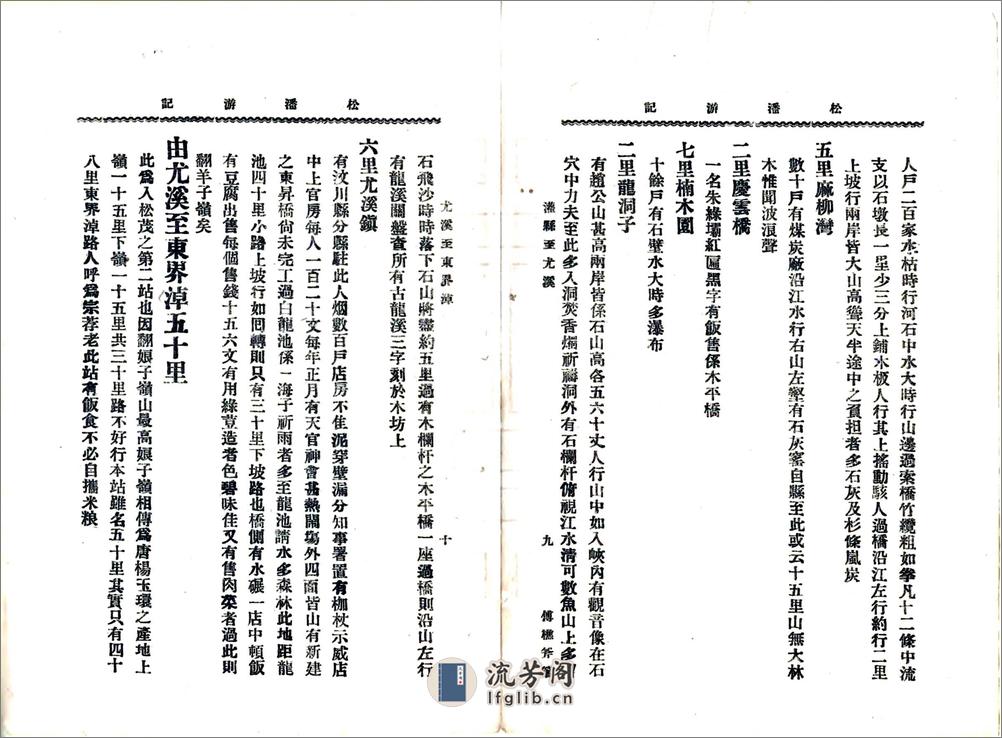 松潘游記
人戶二百家水枯時行河石中水大時行山邊過索橋竹纜粗如拳凡十二條中流
支以石墩長一里少三分上鋪木板人行其上搖動駭人過橋沿江左行約行二里
上坡行兩岸皆大山高聳天半途中之負担者多石灰及杉條嵐炭
五里麻柳灣
數十戶有煤炭廠沿江水行右山左壑有石灰窰自縣至此或云十五里山無大林
木惟聞波浪聲
二里慶雲橋
一名朱綠壩紅匾黑字有飯售係木平橋
七里楠木園
十餘戶有石壁水大時多瀑布
二里龍洞子
有趙公山甚高兩岸皆係石山高各五六十丈人行山中如入峽內有觀音像在石
穴中力夫至此多入洞焚香燭祈禱洞外有石欄杆俯視江水清可數魚山上多
灌縣至尤溪
九
傅樵斧
松潘游記
尤溪至東界淖
十
石飛沙時時落下石山將盡約五里過有木欄杆之木平橋一座過橋則沿山左行
有龍溪關盤查所有古龍溪三字刻於木坊上
六里尤溪鎮
有汶川縣分縣駐此人烟數百戶店房不佳泥穿壁漏分知事署置有枷杖示威店
中上官房每人一百二十文每年正月有天官神會甚熱鬧塲外四面皆山有新建
之東昇橋尚未完工過白龍池係一海子祈雨者多至龍池請水多森林此地距龍
池四十里小路上坡行如囘轉則只有三十里下坡路也橋側有水碾一店中頓飯
有豆腐出售每個售錢十五六文有用綠荳造者色碧味佳又有售肉菜者過此則
翻羊子嶺矣
由尤溪至東界淖五十里
此爲入松茂之第二站也因翻娘子嶺山最高娘子嶺相傳爲唐楊玉環之產地上
嶺一十五里下嶺一十五里共三十里路不好行本站雖名五十里其實只有四十
八里東界淖路人呼爲宗荐老此站有飯食不必自攜米粮
流芳閣
lfglib.cn